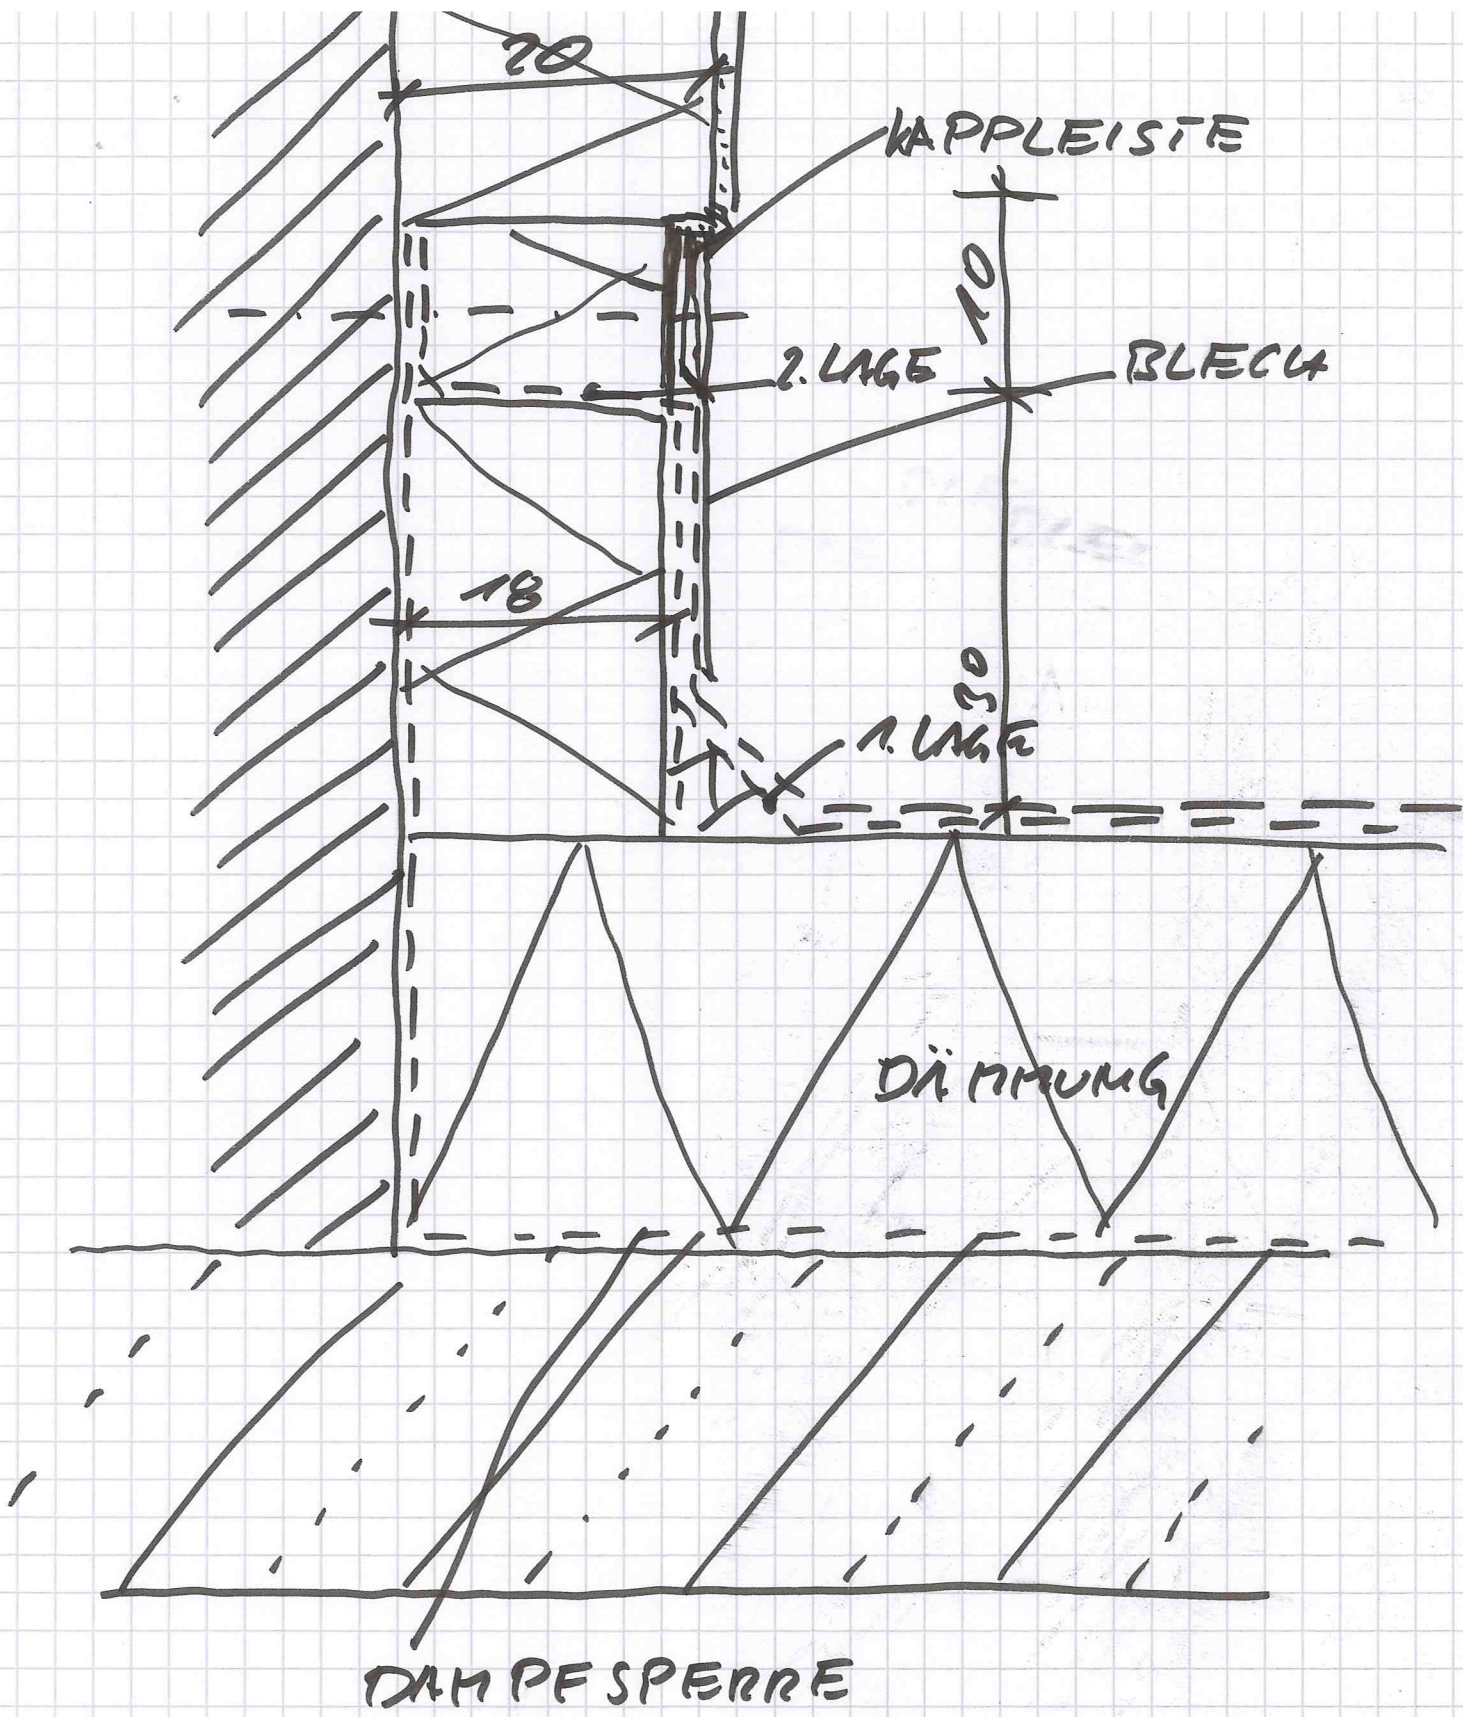 20
KAPPLEISTE
10
2. LAGE
BLECH
18
30
1. LAGE
DÄMMUNG
DAMPFSPERRE